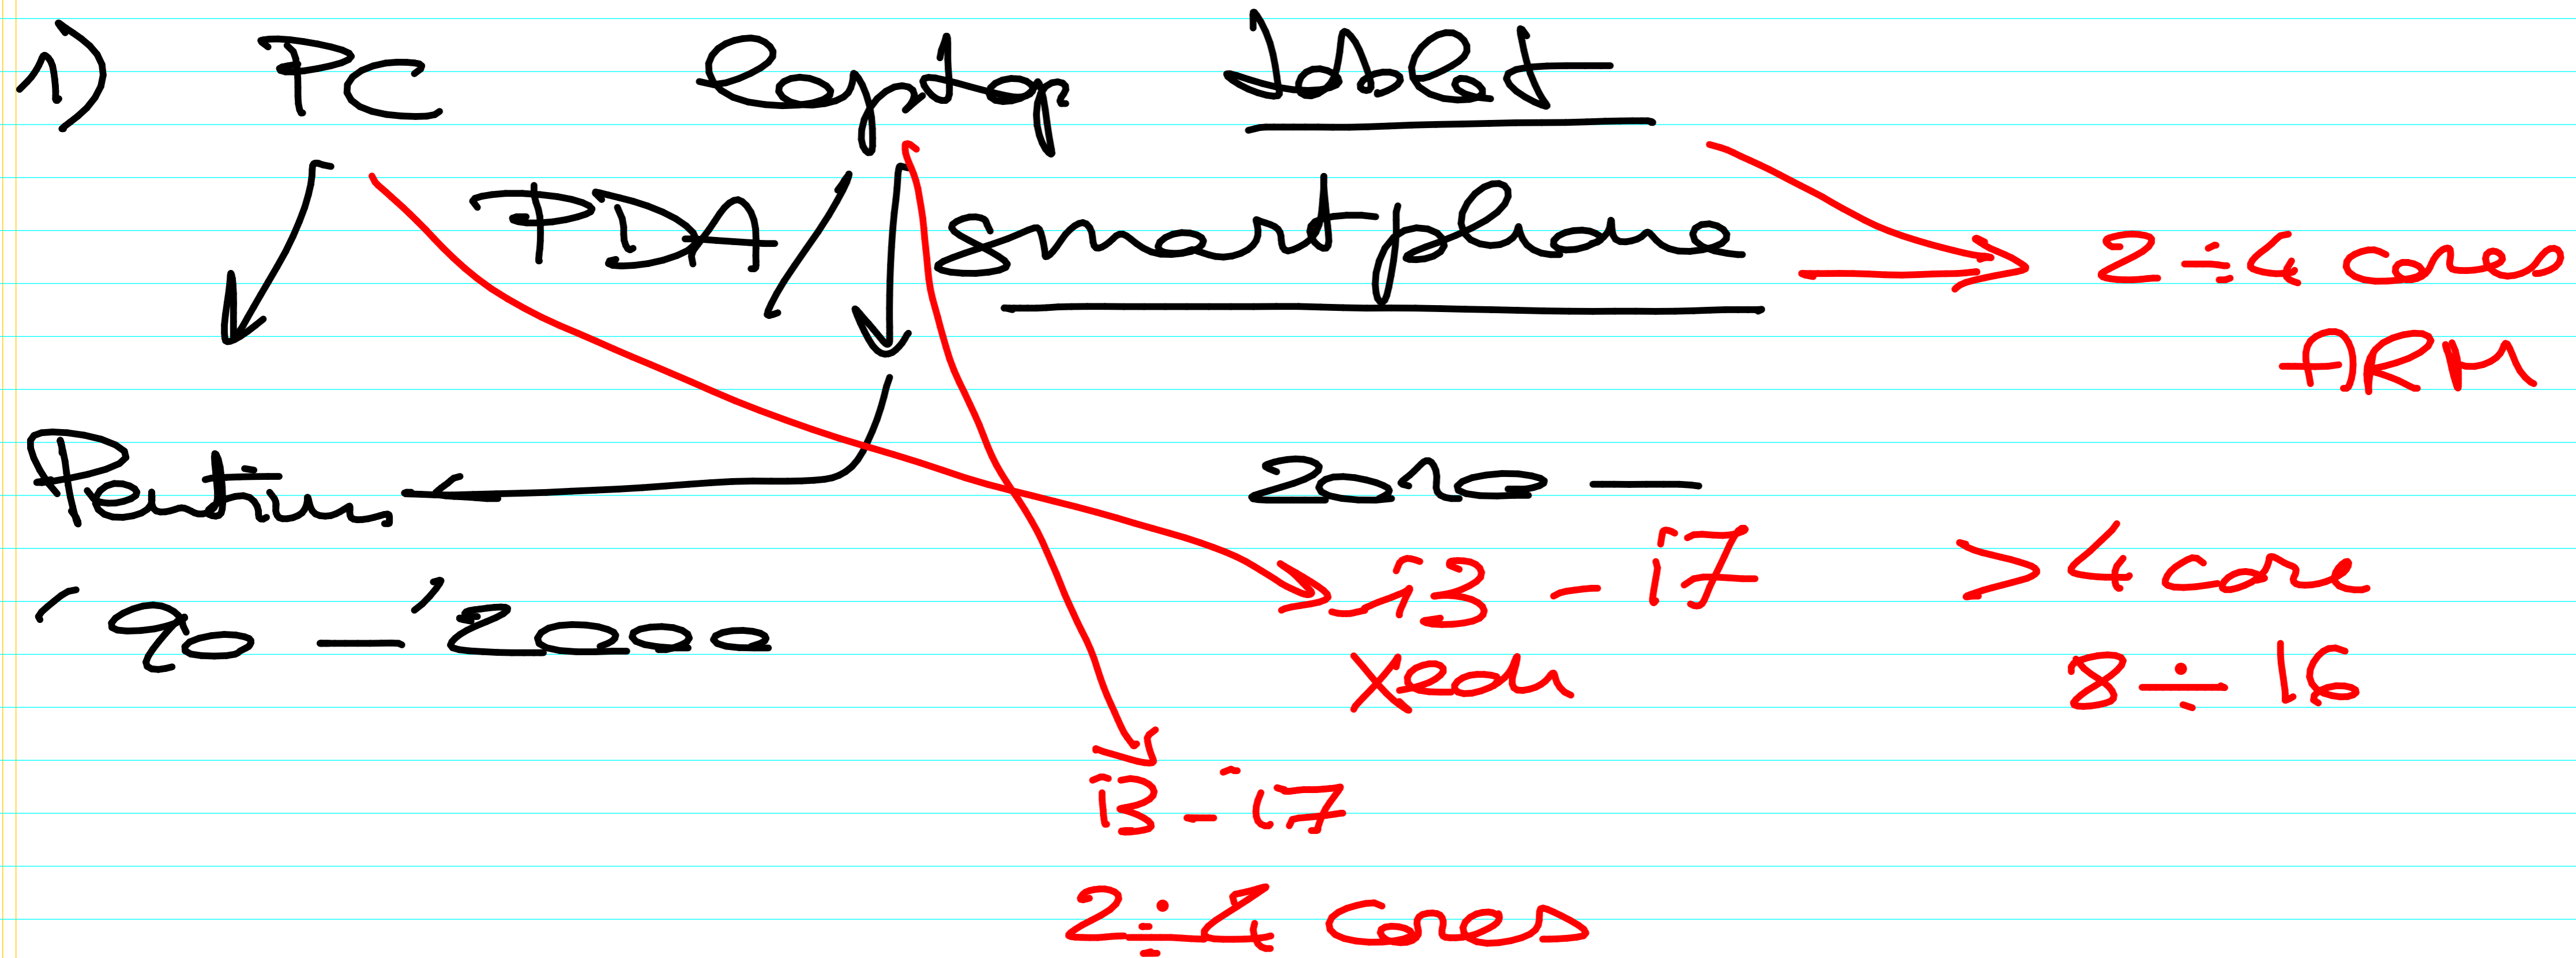 1) PC laptop tablet
PDA / smartphone
2 ÷ 4 cores
ARM
Pentium
2010 —
'90 — '2000
i3 - i7 > 4 core
Xeon 8 ÷ 16
i3 - i7
2 ÷ 4 cores